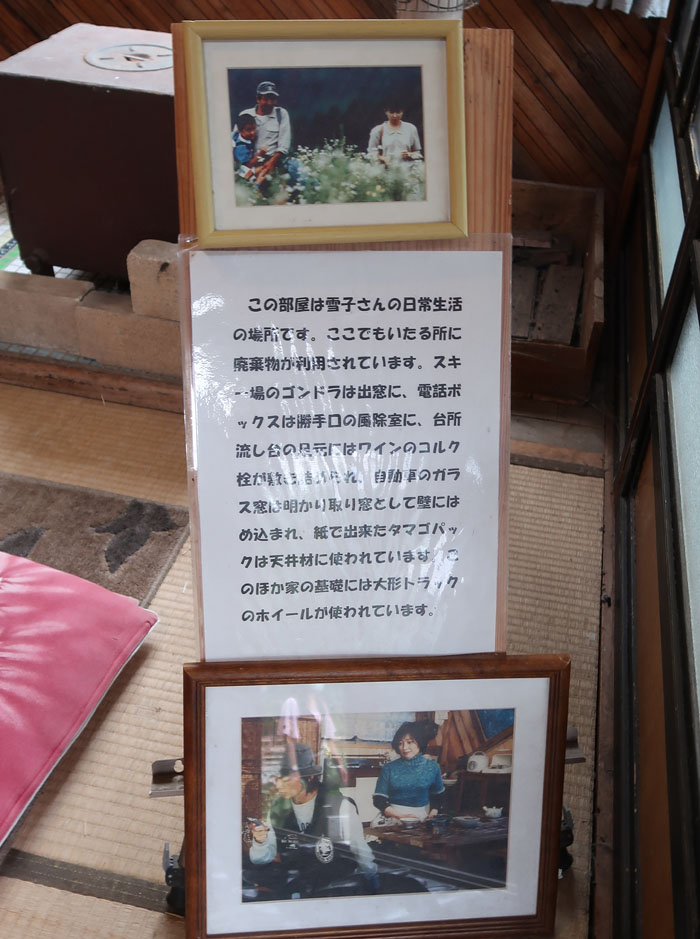 この部屋は雪子さんの日常生活
の場所です。ここでもいたる所に
廃棄物が利用されています。スキ
ー場のゴンドラは出窓に、電話ボ
ックスは勝手口の風除室に、台所
流し台の足元にはワインのコルク
栓が敷き詰められ、自動車のガラ
ス窓は明かり取り窓として壁には
め込まれ、紙で出来たタマゴパッ
クは天井材に使われています。こ
のほか家の基礎には大形トラック
のホイールが使われています。